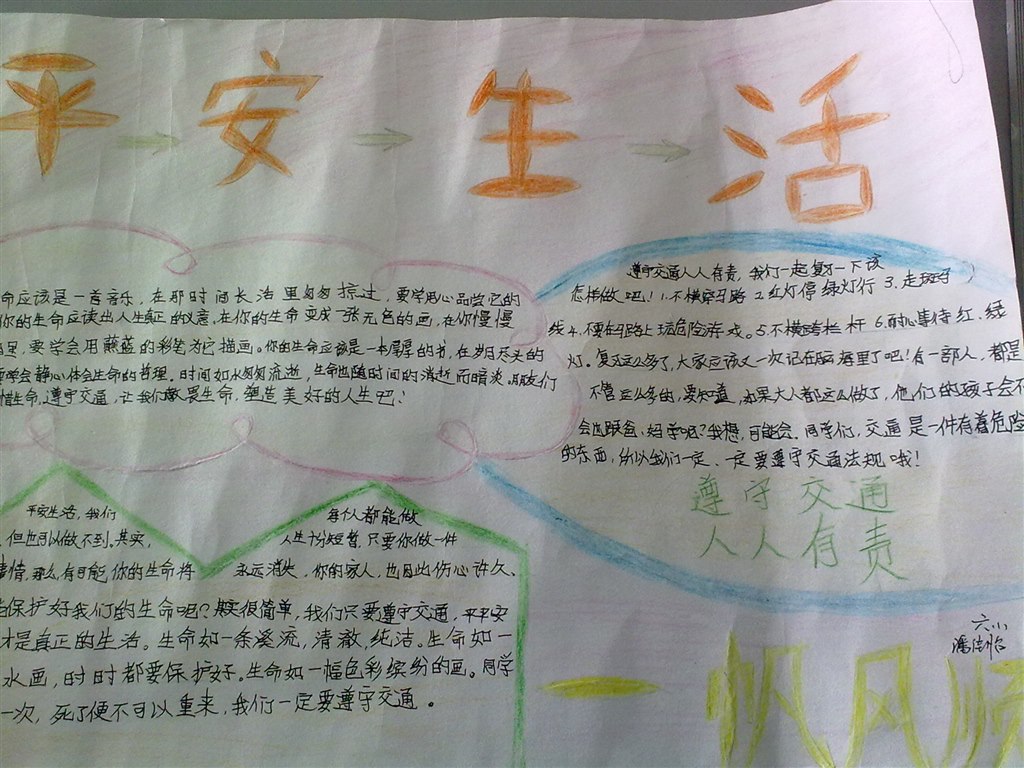 平安生活
命应该是一首音乐，在那时间长活里匆匆掠过，要学用心品尝它的
你的生命应读出人生真正的义意．在你的生命变成一张无色的画，在你慢慢
里，要学会用蘸蓝的彩笔为它描画。你的生命应该是一本厚厚的书，在岁月尽头的
学会静心体会生命的哲理．时间如水匆匆流逝，生命也随时间的消逝而暗淡．朋友们
惜生命，遵守交通，让我们敬畏生命，塑造美好的人生吧！
遵守交通人人有责，我们一起复习一下该
怎样做吧！1.不横穿马路 2.红灯停绿灯行 3.走斑马
线 4.不要在马路上玩危险游戏。5.不横跨栏杆 6.耐心等待红、绿
灯。复习这么多了，大家应该又一次记在脑海里了吧！有一部人，都是
不管这么多的，要知道，如果大人都这么做了，他们的孩子会不
会也跟爸、妈学呢？我想，可能会．同学们，交通是一件有着危险
的东西，所以我们一定、一定要遵守交通法规哦！
遵守交通
人人有责
平安生活，我们 每个人都能做
但也可以做不到。其实， 人生十分短暂，只要你做一件
事情，那么，有可能，你的生命将 永远消失，你的家人，也因此伤心许久、
保护好我们的生命呢？其实很简单，我们只要遵守交通，平平安
才是真正的生活。生命如一条溪流，清澈，纯洁。生命如一
水画，时时都要保护好。生命如一幅色彩缤纷的画。同学
一次，死了便不可以重来，我们一定要遵守交通。
六小
潘
一帆风顺